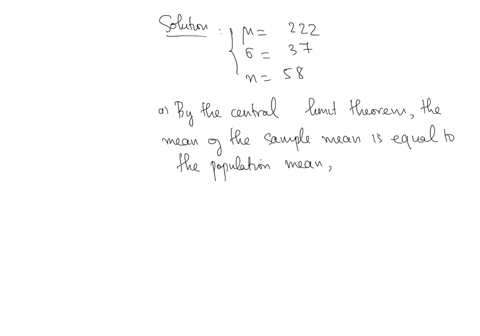 Solution : μ = 222
σ = 37
n = 58
a) By the central limit theorem, the
mean of the sample mean is equal to
the population mean,